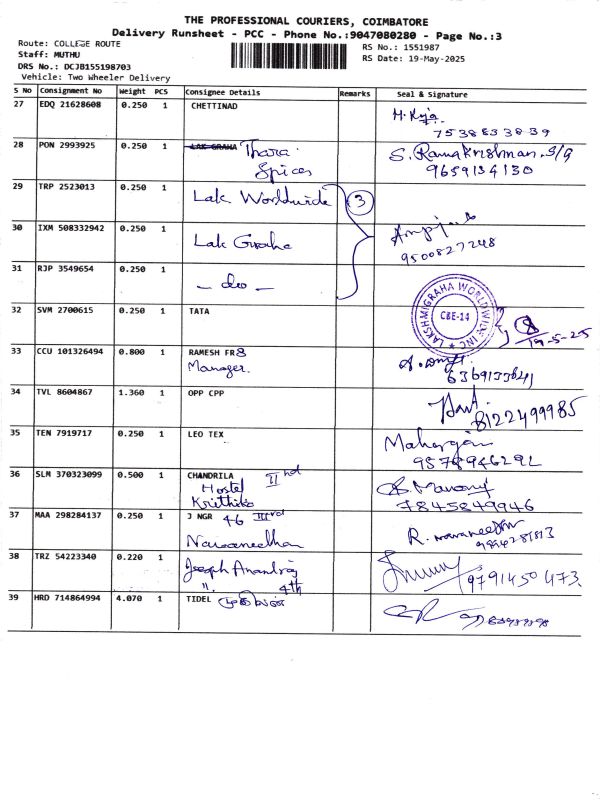 THE PROFESSIONAL COURIERS, COIMBATORE
Delivery Runsheet - PCC - Phone No.:9047080280 - Page No.:3
Route: COLLEGE ROUTE
RS No.: 1551987
Staff: MUTHU
RS Date: 19-May-2025
DRS No.: DCJB155198703
Vehicle: Two Wheeler Delivery
S No Consignment No Weight PCS Consignee Details Remarks Seal & Signature
27 EDQ 21628608 0.250 1 CHETTINAD
M. Raja
7538853839
28 PON 2993925 0.250 1 LAK GRAHA Thara
Spices
S. Ramakrishnan. S/G
9659134130
29 TRP 2523013 0.250 1 Lak Worldwide
3
30 IXM 508332942 0.250 1 Lak Graha
9500827248
31 RJP 3549654 0.250 1 - do -
LAKSHMIGRAHA WORLDWIDE INC
CBE-14
32 SVM 2700615 0.250 1 TATA
19-5-25
33 CCU 101326494 0.800 1 RAMESH FR8
Manager.
6369133641
34 TVL 8604867 1.360 1 OPP CPP
8122499985
35 TEN 7919717 0.250 1 LEO TEX
9578946291
36 SLM 370323099 0.500 1 CHANDRILA IInd
Hostel
Krithika
7845849946
37 MAA 298284137 0.250 1 J NGR 46 IIIrd
Navaneethan
R. Navaneethan
38 TRZ 54223340 0.220 1 Joseph Anandraj
" 4th
9791450473
39 HRD 714864994 4.070 1 TIDEL